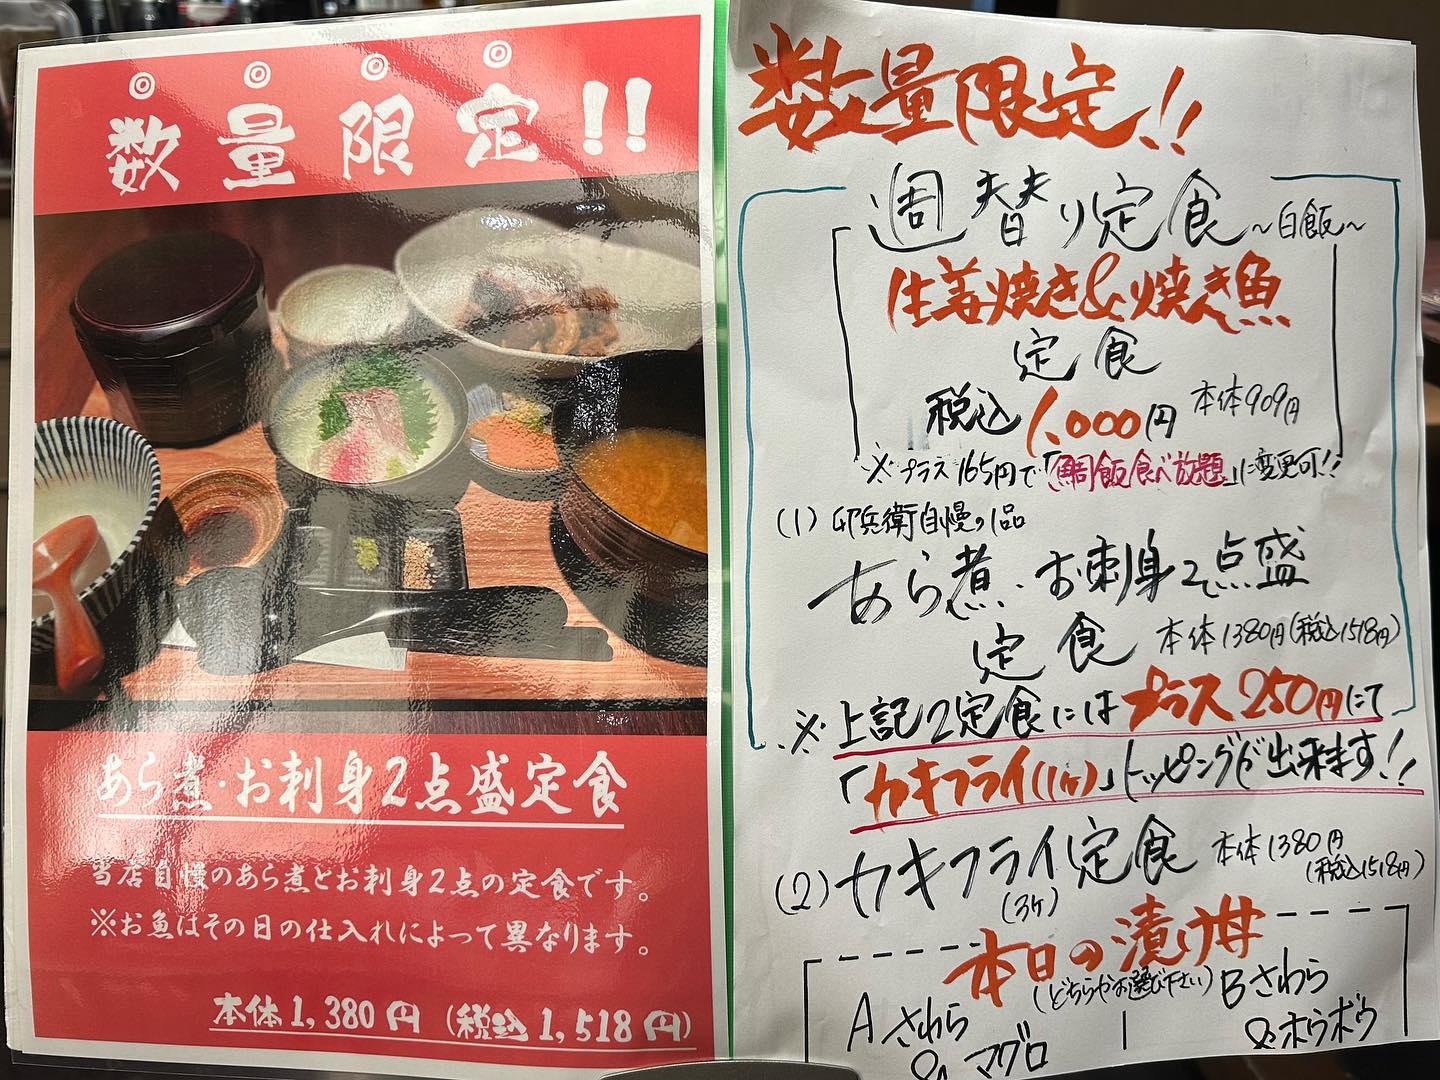 数量限定!!
あら煮・お刺身2点盛定食
当店自慢のあら煮とお刺身2点の定食です。
※お魚はその日の仕入れによって異なります。
本体1,380円(税込1,518円)
数量限定!!
週替り定食~白飯~
生姜焼き&焼き魚
定食
税込1,000円 本体909円
※プラス165円で「鯛飯食べ放題」に変更可!!
(1)卯兵衛自慢の1品
あら煮・お刺身2点盛
定食 本体1380円(税込1518円)
※上記2定食にはプラス250円にて
「カキフライ(1ヶ)」トッピングが出来ます!!
(2)カキフライ定食 本体1380円
(3ケ) (税込1518円)
本日の漬け丼
(どちらかお選び下さい)
A さわら
& マグロ
B さわら
&ホウボウ